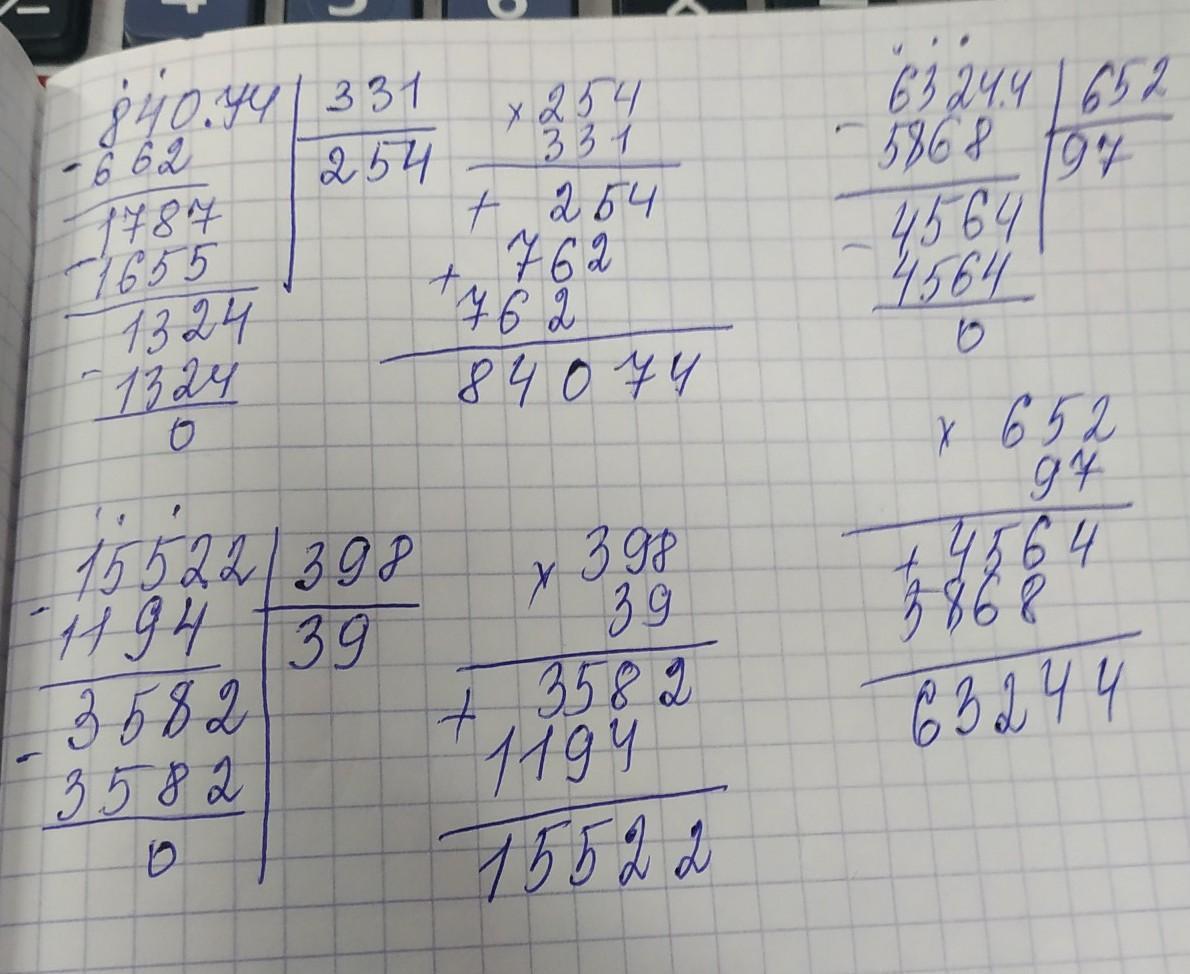 840.74 331
- 662 254
1787
- 1655
1324
- 1324
0
x 254
331
+ 254
+ 762
762
84074
63244 652
- 5868 97
4564
- 4564
0
x 652
97
+ 4564
5868
63244
15522 398
- 1194 39
3582
- 3582
0
x 398
39
+ 3582
1194
15522